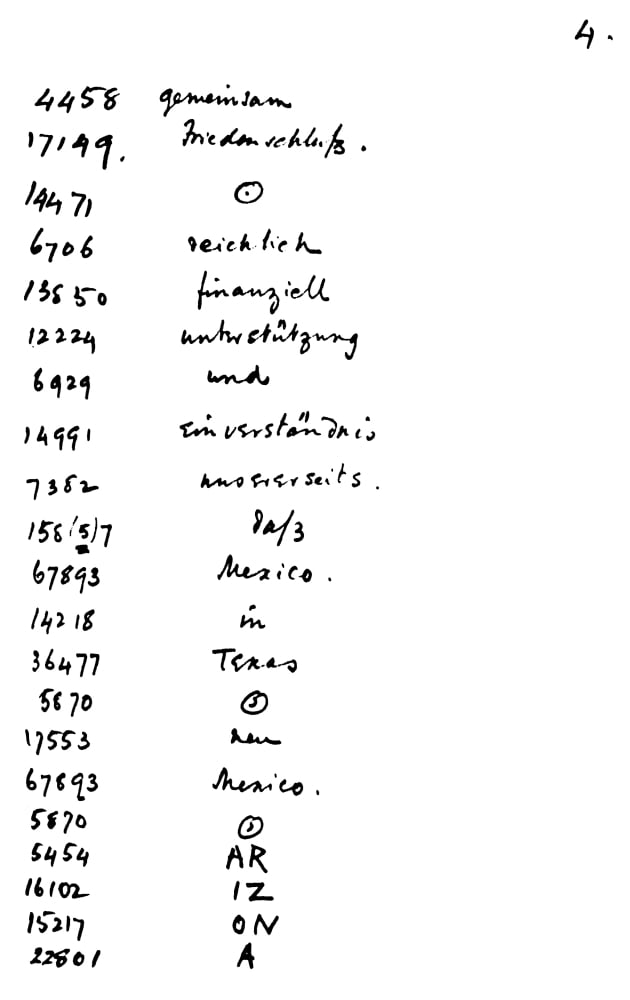 4.
4458 gemeinsam
17149. Friedenschluß.
14471 ⊙
6706 reichlich
13850 finanziell
12224 unterstützung
6929 und
14991 Einverständnis
7382 unsererseits.
158(5)7 daß
67893 Mexico.
14218 in
36477 Texas
5870 ⊙
17553 neu
67893 Mexico.
5870 ⊙
5454 AR
16102 IZ
15217 ON
22801 A